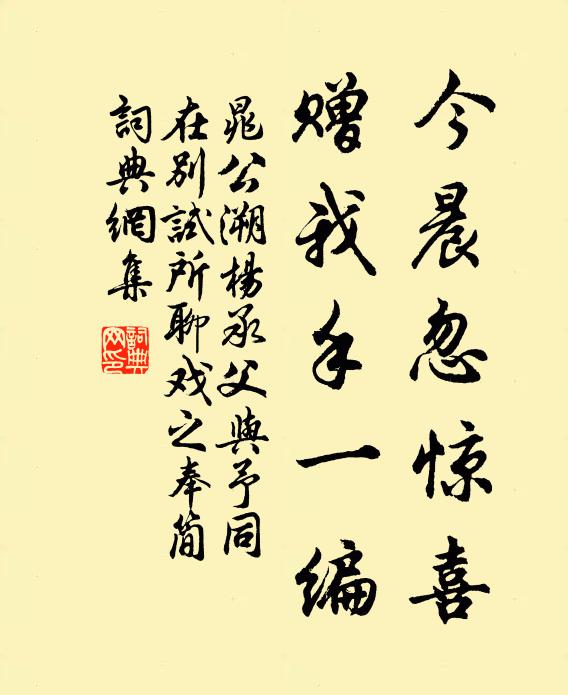 今晨忽惊喜
赠我手一编
晁公溯杨承父與予同
在别試所聊戏之奉简
詞典網集
詞典网印